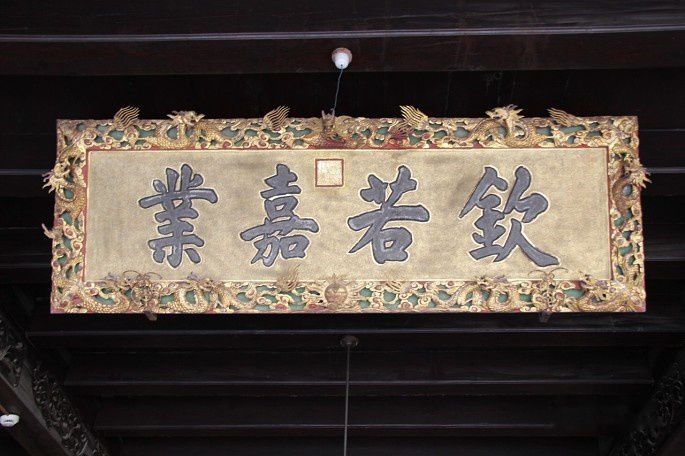 欽若嘉業